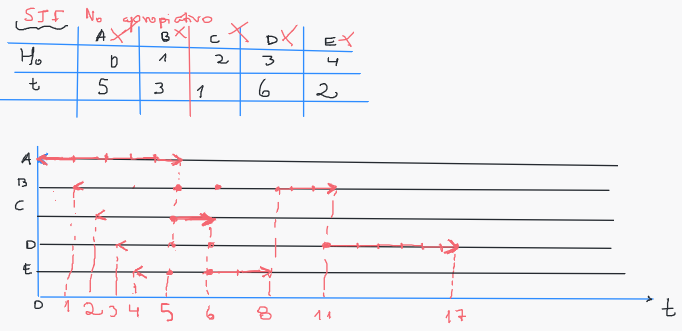 SJF No apropiativo
A B C D E
H₀ 0 1 2 3 4
t 5 3 1 6 2
A
B
C
D
E
0 1 2 3 4 5 6 8 11 17 t